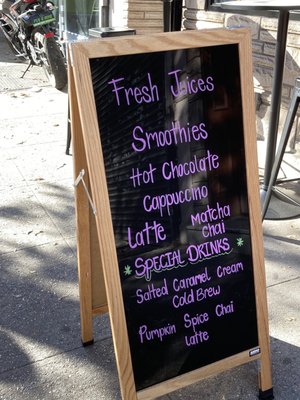 Fresh Juices
Smoothies
Hot Chocolate
Cappuccino
Latte Matcha
chai
SPECIAL DRINKS
Salted Caramel Cream
Cold Brew
Pumpkin Spice Chai
latte